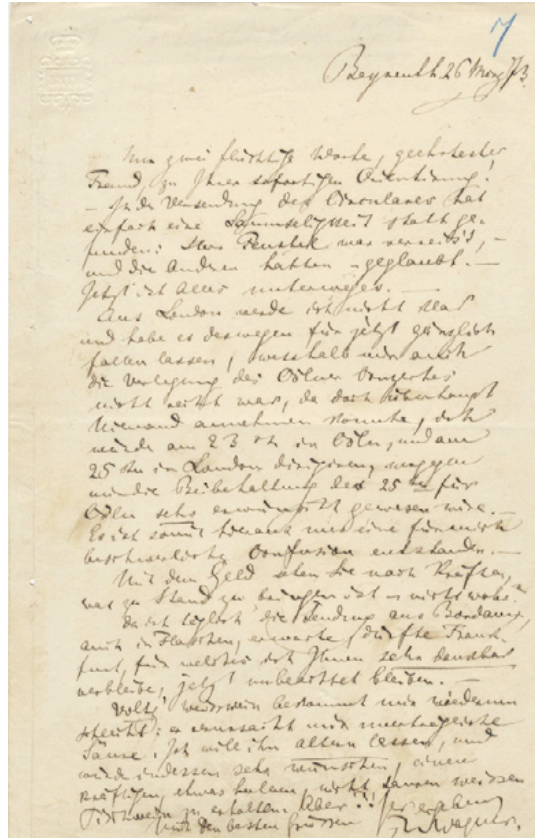 7
Bayreuth 26 März 73.
Nur zwei flüchtige Worte, geehrtester
Freund, zu Ihrer sofortigen Orientirung!
– In der Versendung des Circulares hat
einfach eine Saumseligkeit statt ge-
funden: Herr Feustel war verreis't, –
und die Anderen hatten – geglaubt. –
Jetzt ist Alles unterweges. –
Aus London werde ich nicht klar
und habe es deswegen für jetzt gänzlich
fallen lassen, wesshalb mir auch
die Verlegung des Cölner Conzertes
nicht recht war, da doch überhaupt
Niemand annehmen konnte, ich
würde am 23 ten in Cöln, und am
25 ten in London dirigiren, wogegen
mir die Beibehaltung des 25 ten für
Cöln sehr erwünscht gewesen wäre. –
Es ist somit hieraus nur eine für mich
beschwerliche Confusion entstanden. –
Mit dem Geld sehen Sie nach Kräften,
was zu Stand zu bringen ist –
Da ich täglich die Sendung aus Bordeaux,
auch in Flaschen, erwarte, dürfte Frank-
furt, für welches ich Ihnen sehr dankbar
verbleibe, jetzt unbelastet bleiben. –
Voltz' wein bekommt mir wiederum
schlecht: er verursacht mir unerträgliche
Säure. Ich will ihn altern lassen, und
würde indessen sehr wünschen, einen
kräftigen, etwas herben, nicht sauren weissen
Tischwein zu erhalten. Aber!!
Mit den besten Grüssen Ihr ergebener
RWagner.